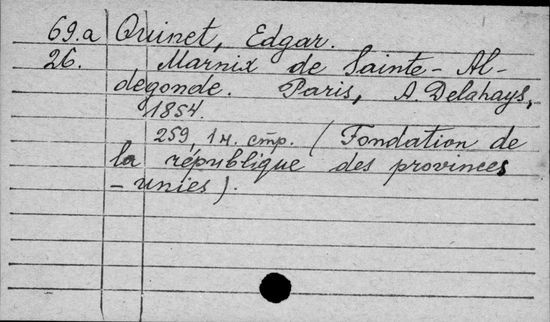 69.a Quinet, Edgar.
26. Marnix de Sainte-Al-
degonde. Paris, A. Delahays,
1854.
259, 1 н. стр. (Fondation de
la république des provinces
-unies).